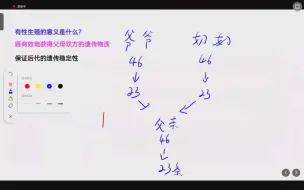 有性生殖的意义是什么?
既有效地获得父母双方的遗传物质
保证后代的遗传稳定性
爷爷 奶奶
46 46
23 23
父亲
46
23条